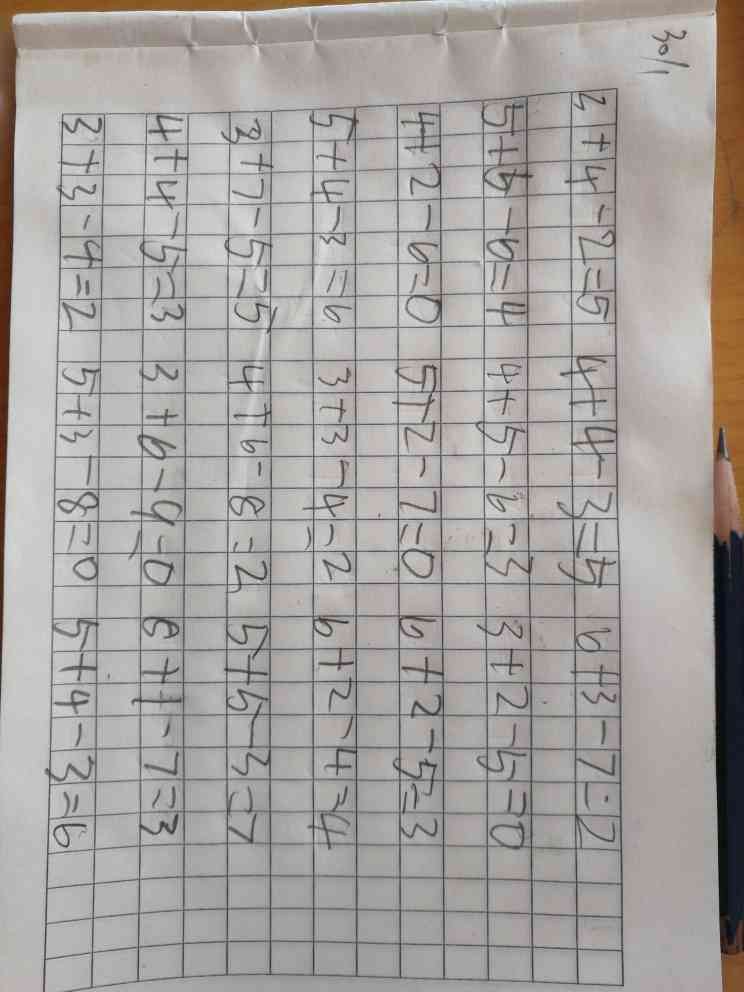 30/1
3+4-2=5 4+4-3=5 6+3-7=2
5+5-6=4 4+5-6=3 3+2-5=0
4+2-6=0 5+2-7=0 6+2-5=3
5+4-3=6 3+3-4=2 6+2-4=4
3+7-5=5 4+6-8=2 5+5-3=7
4+4-5=3 3+6-9=0 8+1-7=3
3+3-4=2 5+3-8=0 5+4-3=6